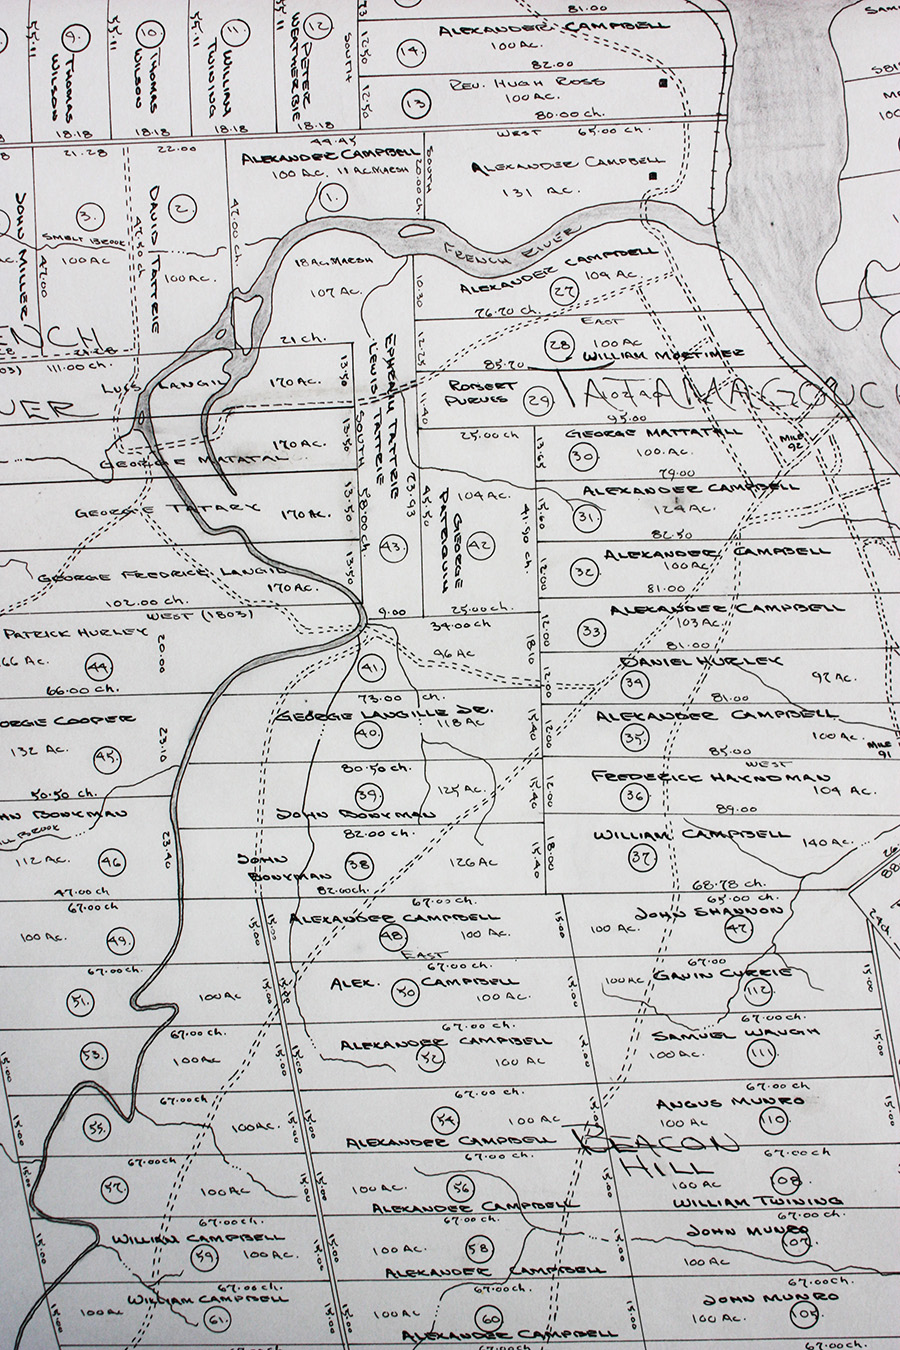 81.00
14.
ALEXANDER CAMPBELL
100 AC.
82.00
12.50
REV. HUGH ROSS
13
100 AC.
80.00 ch.
12.50
9.
THOMAS WILSON
10
THOMAS WILSON
11
WILLIAM TWINING
12
PETER WEATHERBIE
SOUTH
55.11
55.11
55.11
18.18
18.18
18.18
18.18
WEST 65.00 ch.
ALEXANDER CAMPBELL
131 AC.
44.45
ALEXANDER CAMPBELL
100 AC. 11 AC. MARSH
1.
SOUTH
20.00 ch.
21.28
22.00
JOHN MILLER
47.00
3.
SMELT BROOK
100 AC
47.50 ch
DAVID TATTRIE
2.
100 AC.
47.00 ch
FRENCH RIVER
18 AC. MARSH
107 AC.
21 ch.
ALEXANDER CAMPBELL
27
109 AC.
76.70 ch
10.30
EAST
28
100 AC
WILLIAM MORTIMER
85.70
12.25
ROBERT PURVES
29
95.00
11.40
TATAMAGOUCH
21.28
111.00 ch.
LUIS LANGIL
170 AC.
13.50
GEORGE MATATAL
170 AC.
13.50
GEORGE TATARY
170 AC.
13.50
GEORGE FREDRICK LANGIL
170 AC.
13.50
102.00 ch.
WEST (1803)
EPHRAIM TATTRIE
LEWIS TATTRIE
SOUTH 58.00 ch.
73.93
43.
9.00
45.50
GEORGE PATRIQUIN
104 AC.
42
41.90 ch.
25.00 ch
25.00 ch.
GEORGE MATTATALL
30
100 AC.
79.00
13.65
MILE 92
ALEXANDER CAMPBELL
31.
124 AC.
82.50
15.60
ALEXANDER CAMPBELL
32.
100 AC.
81.00
12.00
ALEXANDER CAMPBELL
33.
103 AC.
81.00
12.00
DANIEL HURLEY
34
92 AC.
81.00
12.00
ALEXANDER CAMPBELL
35.
100 AC.
85.00
12.00
MILE 91
WEST
FREDERICK HAYNDMAN
36
104 AC.
89.00
12.00
WILLIAM CAMPBELL
37.
140 AC.
68.78 ch.
18.00
PATRICK HURLEY
66 AC.
44.
20.00
66.00 ch.
34.00 ch
96 AC
41.
18.10
73.00 ch.
GEORGE LANGILLE JR.
118 AC
40.
15.40
80.50 ch.
39.
125 AC.
JOHN BONYMAN
15.40
82.00 ch.
JOHN BONYMAN
38
126 AC
82.00 ch.
15.40
ORGE COOPER
132 AC.
45.
23.10
50.50 ch.
HN BONYMAN
112 AC.
46
23.40
47.00 ch
67.00 ch.
100 AC.
49.
67.00 ch.
51.
100 AC
67.00 ch.
53.
100 AC
67.00 ch.
55.
100 AC.
67.00 ch
57.
100 AC
67.00 ch.
WILLIAM CAMPBELL
59
100 AC.
67.00 ch.
WILLIAM CAMPBELL
100 AC
61.
67.00 ch.
ALEXANDER CAMPBELL
48.
100 AC.
EAST
67.00 ch.
ALEX. CAMPBELL
50
100 AC.
67.00 ch.
ALEXANDER CAMPBELL
52.
100 AC
67.00 ch.
54
100 AC
ALEXANDER CAMPBELL
67.00 ch.
100 AC.
56
ALEXANDER CAMPBELL
67.00 ch.
100 AC
58
ALEXANDER CAMPBELL
67.00 ch.
100 AC
60
ALEXANDER CAMPBELL
65.00 ch.
JOHN SHANNON
100 AC.
47.
67.00
GAVIN CURRIE
100 AC.
112.
67.00 ch.
SAMUEL WAUGH
100 AC.
111.
67.00 ch
ANGUS MUNRO
100 AC
110.
BEACON HILL
67.00 ch.
108.
WILLIAM TWINING
67.00 ch.
JOHN MUNRO
107.
100 AC
67.00 ch.
JOHN MUNRO
100 AC.
105.
67.00 ch.